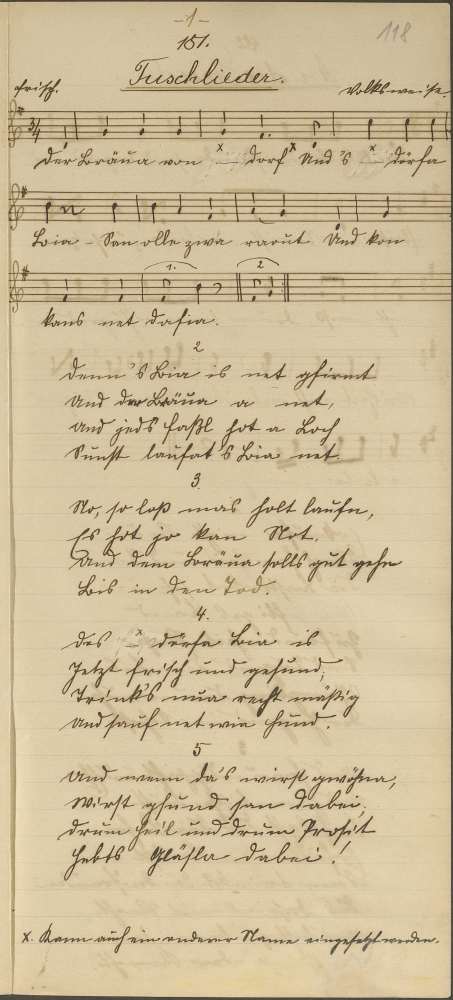 -1-
118
151.
Tuschlieder.
frisch. Volksweise.
3/4
Der Bräua von x — dorf x Und 's x — dörfa
Bia - San olle zwa raout Und kon
1. 2
kans net dafia.
2
Denn 's Bia is net gfirmt
Und der Bräua a net,
Und jeds Faßl hot a Loch
Sunst laufat 's Bia net.
3.
No, so loß mas holt laufn,
Es hot jo kan Not.
Und dem Bräua solls gut gehn
Bis in den Tod.
4.
Des x — dörfa Bia is
Jetzt frisch und gesund,
Trinkt's nua recht mäßig
Und sauf net wia Hund.
5
Und wenn da's wirst gwöhna,
Wirst gsund san dabei,
Drum Heil und drum Prosit
Hebts Gläsla dabei!
x. Kann auch ein anderer Name eingesetzt werden.